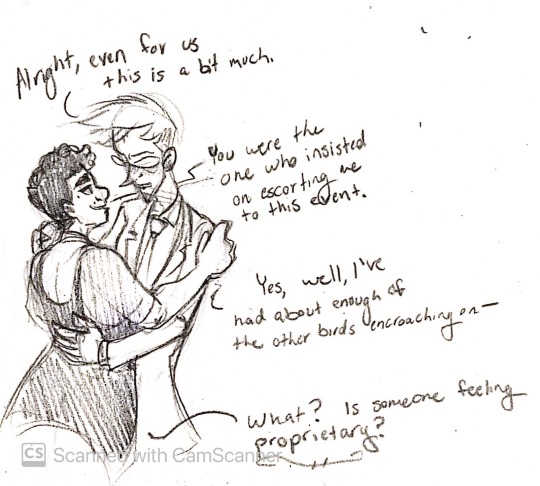 Alright, even for us
this is a bit much.
You were the
one who insisted
on escorting me
to this event.
Yes, well, I've
had about enough of
the other birds encroaching on—
What? Is someone feeling
proprietary?
CS Scanned with CamScanner